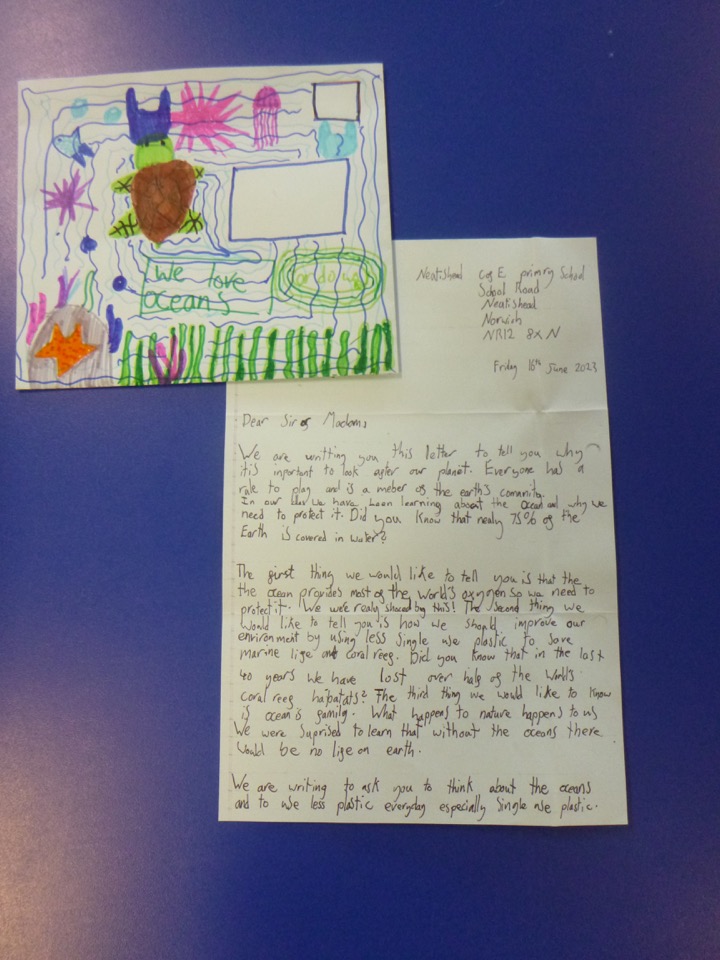 We love
oceans
or do us
Neatishead C of E primry School
School Road
Neatishead
Norwich
NR12 8XN
Friday 16th June 2023
Dear Sir or Madam,
We are writting you this letter to tell you why
itis inportant to look after our planet. Everyone has a
rule to play and is a meber of the earth's comunity.
In our class we have been learning about the Ocean and why we
need to protect it. Did you know that nealy 75% of the
Earth is covered in water?
The first thing we would like to tell you is that the
the ocean provides most of the world's oxygen so we need to
protect it. We were realy shoced by this! The second thing we
would like to tell you is how we should improve our
environment by using less single use plastic to save
marine life and coral reef. Did you know that in the last
40 years we have lost over half of the world's
coral reef habatats? The third thing we would like to know
is ocean is family. What happens to nature happens to us
We were suprised to learn that without the oceans there
would be no life on earth.
We are writing to ask you to think about the oceans
and to use less plastic everyday especially single use plastic.